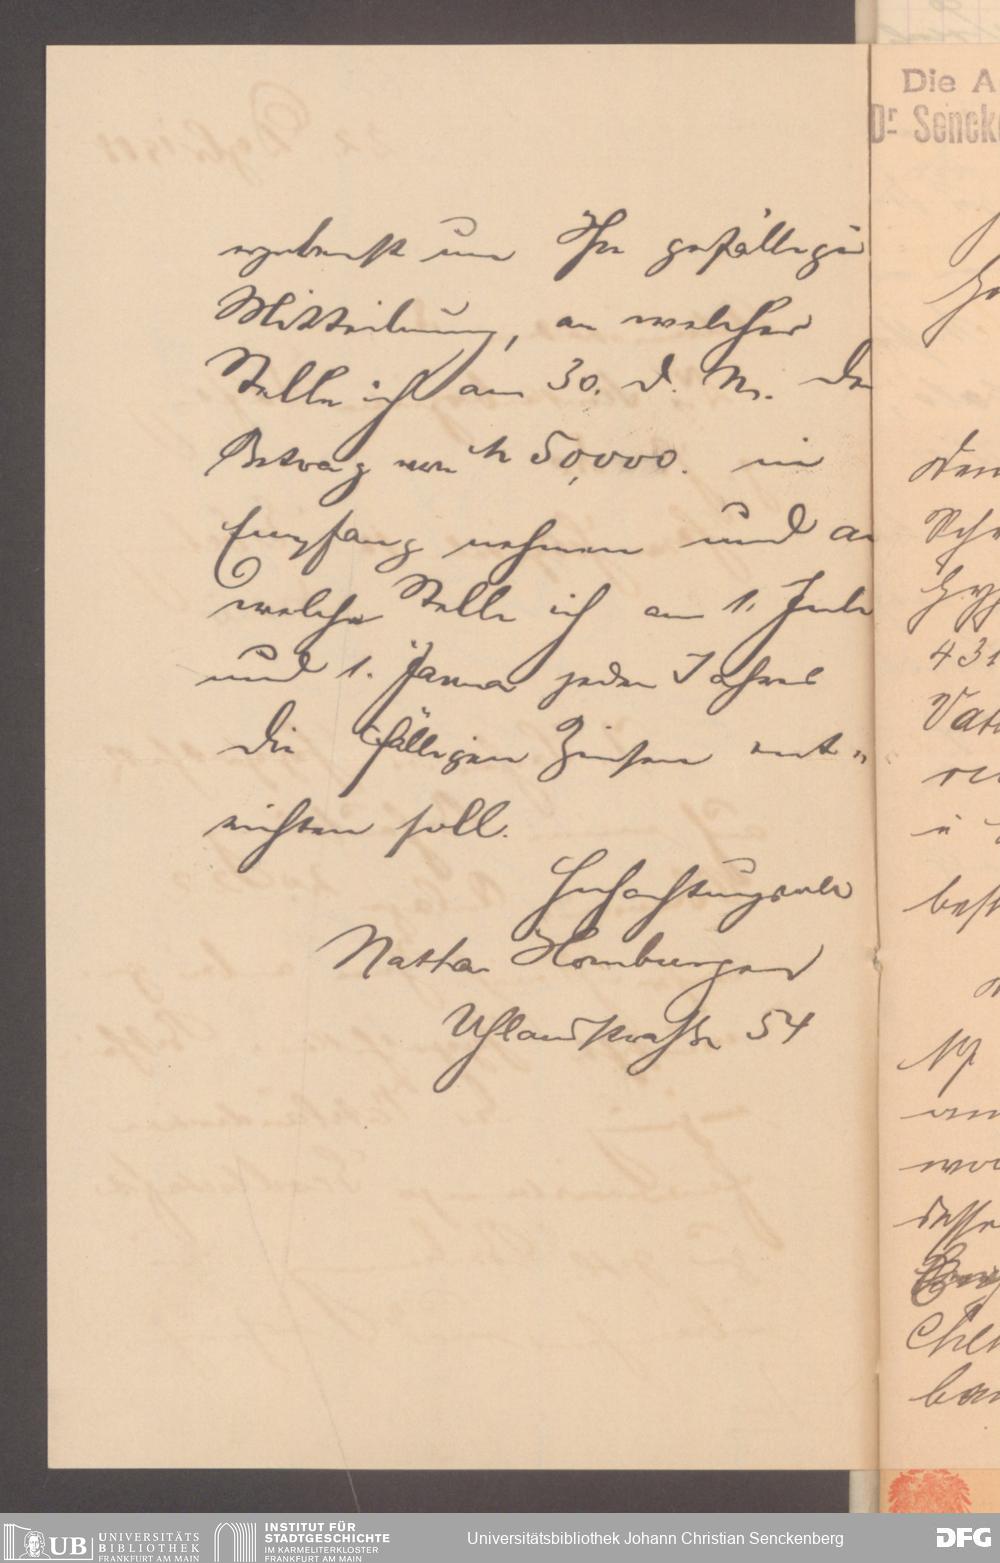 ergebenst um Ihre gefällige
Mitteilung, an welcher
Stelle ich am 30. d. Ms. den
Betrag von M 50,000. in
Empfang nehmen und an
welche Stelle ich am 1. Juli
und 1. Januar jeden Jahres
die fälligen Zinsen ent-
richten soll.
Hochachtungsvoll
Nathan Homburger
Uhlandstraße 54
Die A
Dr. Sencke
431
UB UNIVERSITÄTS
BIBLIOTHEK
FRANKFURT AM MAIN
INSTITUT FÜR
STADTGESCHICHTE
IM KARMELITERKLOSTER
FRANKFURT AM MAIN
Universitätsbibliothek Johann Christian Senckenberg
DFG